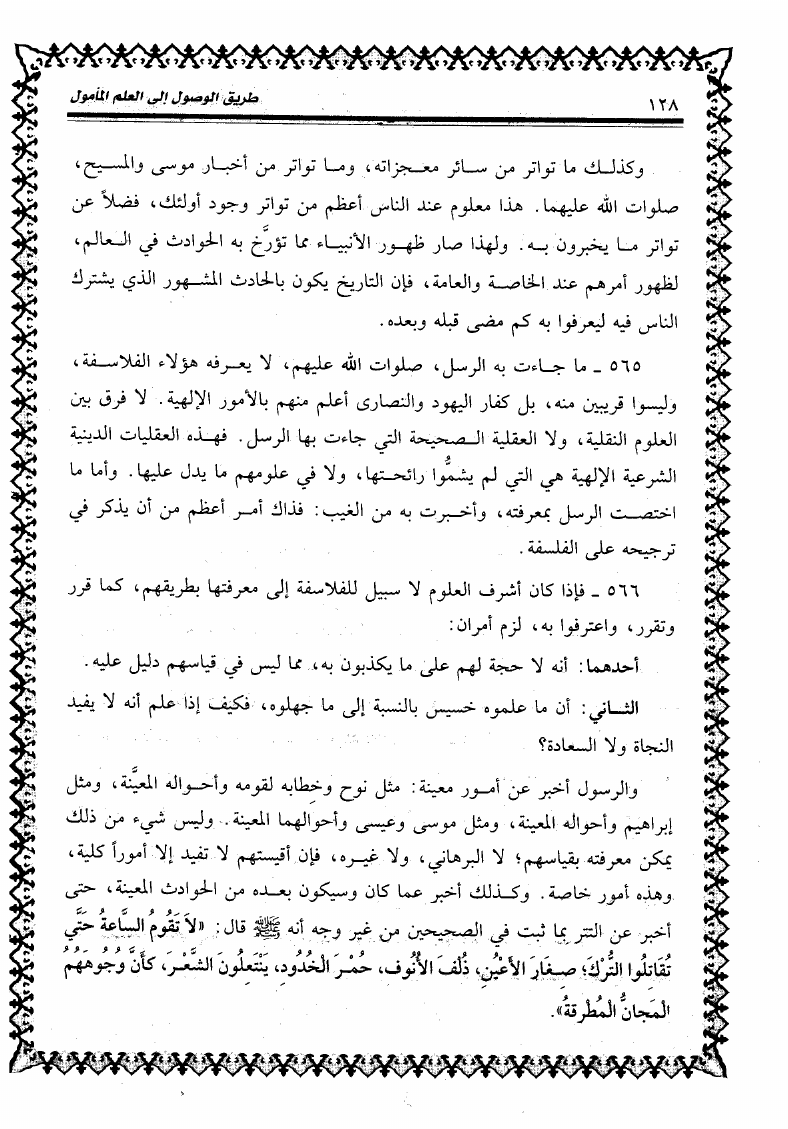 ١٢٨
طريق الوصول إلى العلم المأمول
وكذلك ما تواتر من سائر معجزاته، وما تواتر من أخبار موسى والمسيح،
صلوات الله عليهما. هذا معلوم عند الناس أعظم من تواتر وجود أولئك، فضلاً عن
تواتر ما يخبرون به. ولهذا صار ظهور الأنبياء مما تؤرَّخ به الحوادث في العالم،
لظهور أمرهم عند الخاصة والعامة، فإن التاريخ يكون بالحادث المشهور الذي يشترك
الناس فيه ليعرفوا به كم مضى قبله وبعده.
٥٦٥ ـ ما جاءت به الرسل، صلوات الله عليهم، لا يعرفه هؤلاء الفلاسفة،
وليسوا قريبين منه، بل كفار اليهود والنصارى أعلم منهم بالأمور الإلهية. لا فرق بين
العلوم النقلية، ولا العقلية الصحيحة التي جاءت بها الرسل. فهذه العقليات الدينية
الشرعية الإلهية هي التي لم يشمُّوا رائحتها، ولا في علومهم ما يدل عليها. وأما ما
اختصت الرسل بمعرفته، وأخبرت به من الغيب: فذاك أمر أعظم من أن يذكر في
ترجيحه على الفلسفة.
٥٦٦ ـ فإذا كان أشرف العلوم لا سبيل للفلاسفة إلى معرفتها بطريقهم، كما قرر
وتقرر، واعترفوا به، لزم أمران:
أحدهما: أنه لا حجة لهم على ما يكذبون به، مما ليس في قياسهم دليل عليه.
الثاني: أن ما علموه خسيس بالنسبة إلى ما جهلوه، فكيف إذا علم أنه لا يفيد
النجاة ولا السعادة؟
والرسول أخبر عن أمور معينة: مثل نوح وخطابه لقومه وأحواله المعيَّنة، ومثل
إبراهيم وأحواله المعينة، ومثل موسى وعيسى وأحوالهما المعينة. وليس شيء من ذلك
يمكن معرفته بقياسهم؛ لا البرهاني، ولا غيره، فإن أقيستهم لا تفيد إلا أموراً كلية،
وهذه أمور خاصة. وكذلك أخبر عما كان وسيكون بعده من الحوادث المعينة، حتى
أخبر عن التتر بما ثبت في الصحيحين من غير وجه أنه ﷺ قال: «لاَ تَقُومُ السَّاعةُ حَتَّي
تُقَاتِلُوا التُّركَ؛ صِغَارَ الأَعْيُنِ، ذُلْفَ الأُنُوف، حُمْرَ الخُدُودِ، يَنْتَعِلُونَ الشَّعْرَ، كَأَنَّ وُجُوهَهُمُ
المَجانُّ المُطْرقةُ».